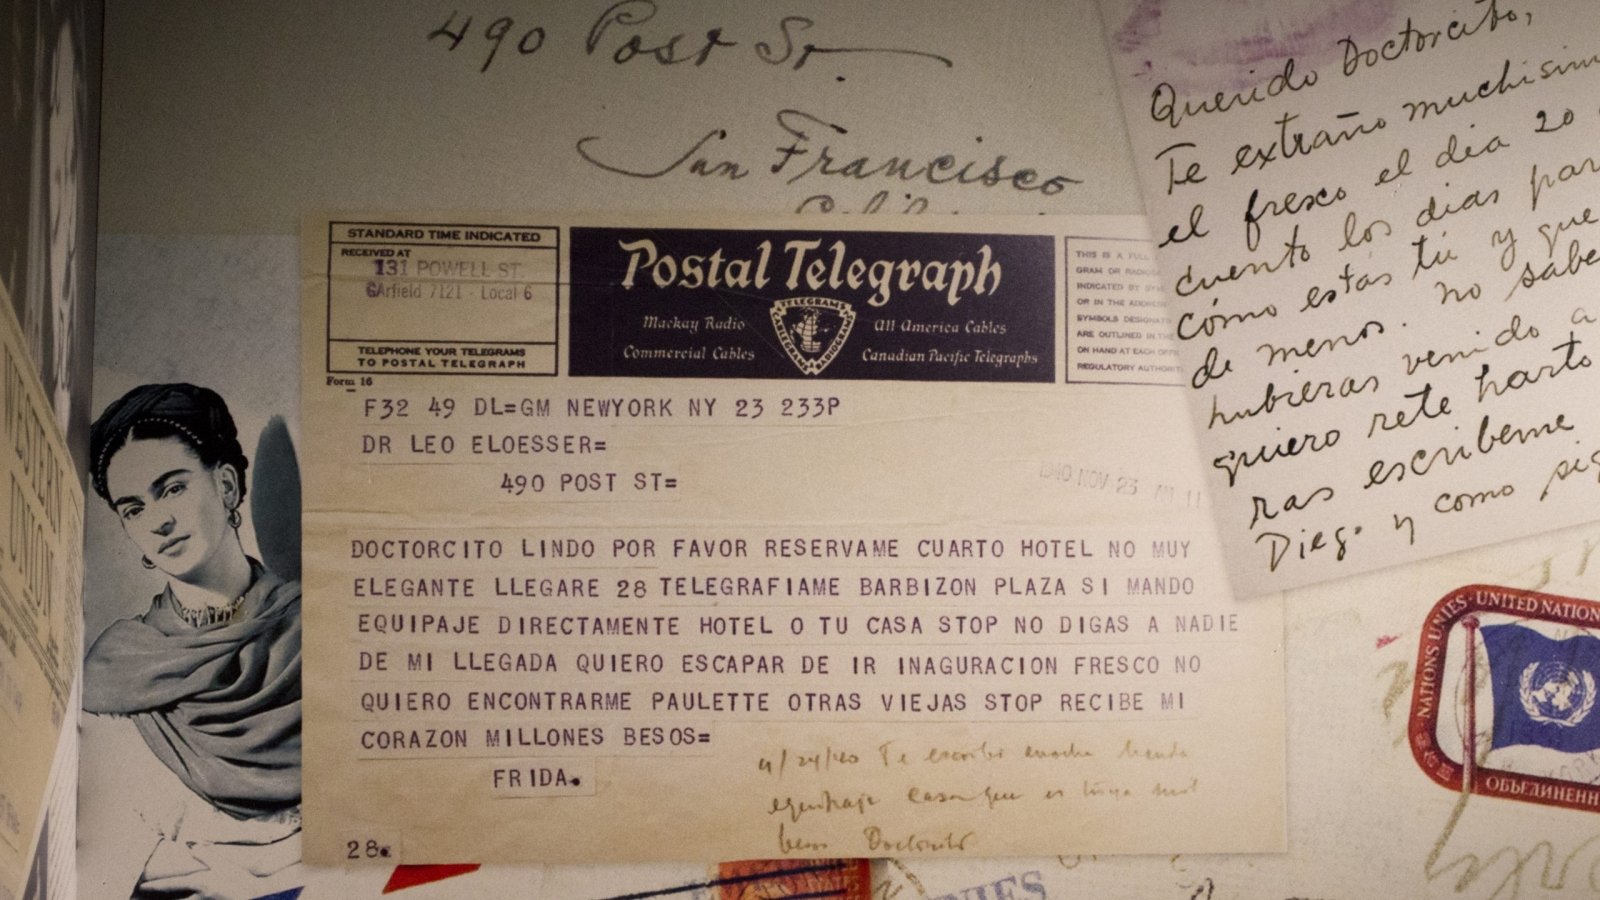 490 Post St.
San Francisco
STANDARD TIME INDICATED
RECEIVED AT
131 POWELL ST.
GArfield 7121 - Local 6
TELEPHONE YOUR TELEGRAMS
TO POSTAL TELEGRAPH
Form 16
Postal Telegraph
Mackay Radio
Commercial Cables
TELEGRAMS
CABLEGRAMS
RADIOGRAMS
All America Cables
Canadian Pacific Telegraphs
THIS IS A FULL
GRAM OR
INDICATED BY
OR IN THE
SYMBOLS
ARE OUTLINED IN
ON HAND AT EACH
REGULATORY
F32 49 DL=GM NEWYORK NY 23 233P
DR LEO ELOESSER=
490 POST ST=
1940 NOV 23
DOCTORCITO LINDO POR FAVOR RESERVAME CUARTO HOTEL NO MUY
ELEGANTE LLEGARE 28 TELEGRAFIAME BARBIZON PLAZA SI MANDO
EQUIPAJE DIRECTAMENTE HOTEL O TU CASA STOP NO DIGAS A NADIE
DE MI LLEGADA QUIERO ESCAPAR DE IR INAGURACION FRESCO NO
QUIERO ENCONTRARME PAULETTE OTRAS VIEJAS STOP RECIBE MI
CORAZON MILLONES BESOS=
FRIDA.
28.
Te escribi anoche
Doctorcito
Querido Doctorcito,
Te extraño
el fresco el dia 20
cuento los dias
cómo estás tú y que
de menos. no
hubieras venido a
quiero rete harto
ras escribeme
Diego y como
WESTERN
UNION
NATIONS UNIES · UNITED NATION